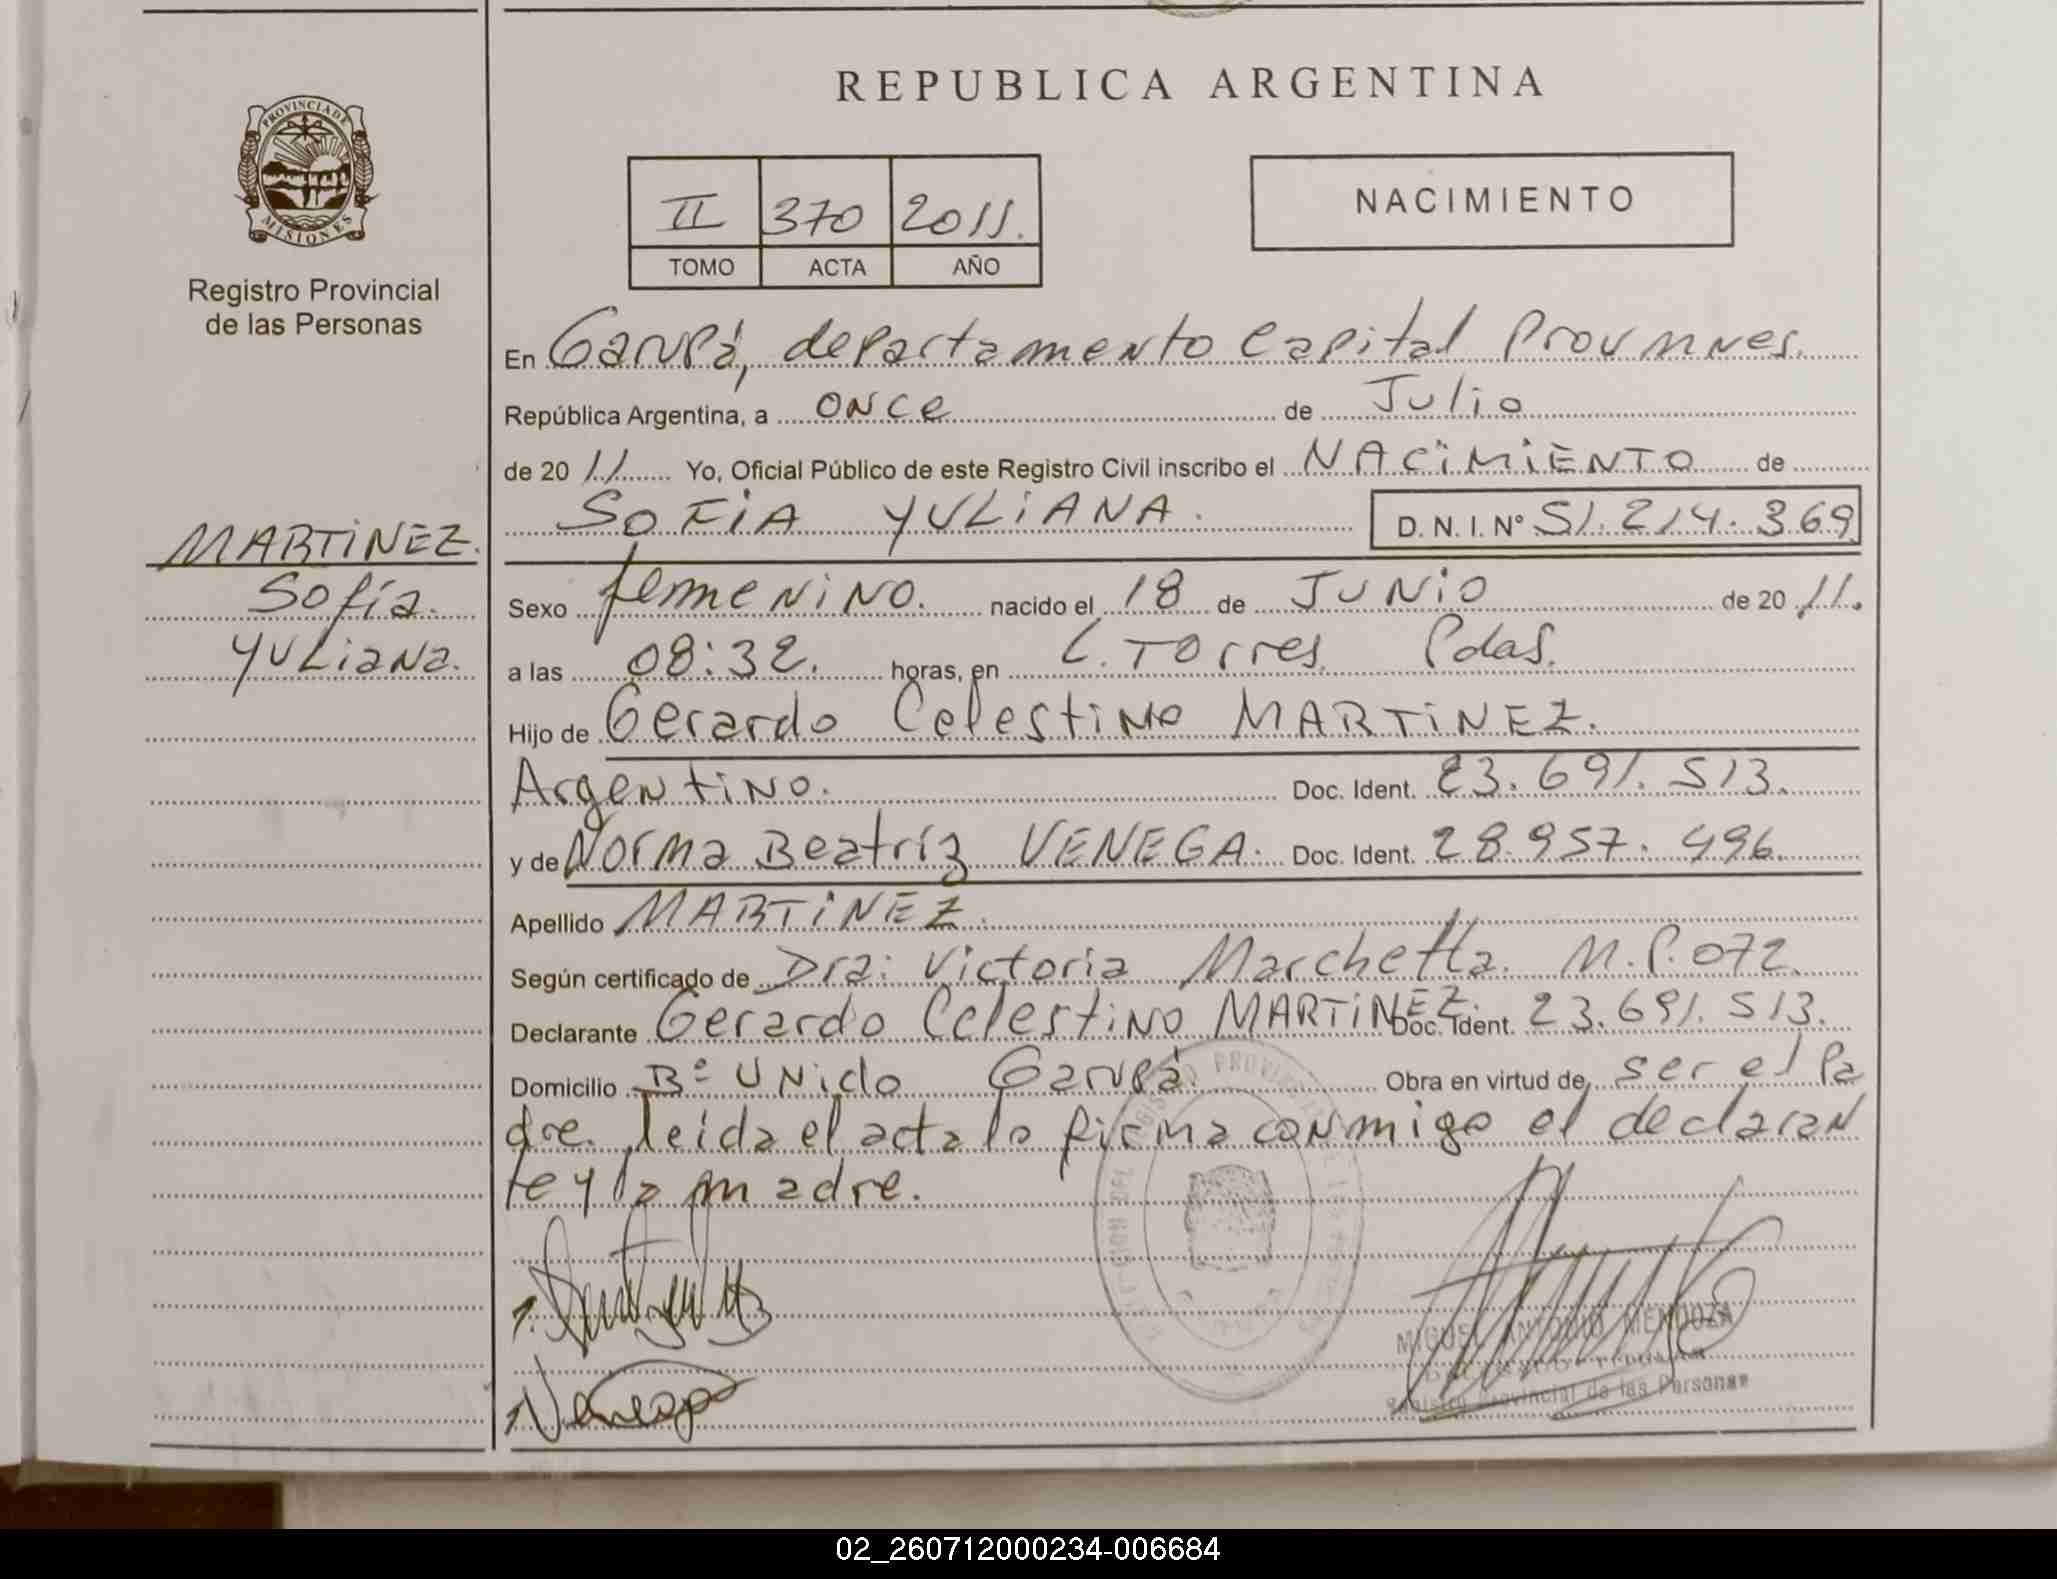 REPUBLICA ARGENTINA
PROVINCIA DE
MISIONES
Registro Provincial
de las Personas
II 370 2011.
TOMO ACTA AÑO
NACIMIENTO
En Garupá, departamento Capital Prov
República Argentina, a once de Julio
de 20 11 Yo, Oficial Público de este Registro Civil inscribo el NACIMIENTO de
SOFIA YULIANA. D. N. I. Nº 51.214.369
MARTINEZ.
Sofía
Yuliana.
Sexo femenino. nacido el 18 de JUNIO de 20 11.
a las 08:32. horas, en L. Torres. Pdas.
Hijo de Gerardo Celestino MARTINEZ.
Argentino. Doc. Ident. 23.691.513.
y de Norma Beatríz VENEGA. Doc. Ident. 28.957.496.
Apellido MARTINEZ.
Según certificado de Dra: Victoria Marchetta. M.P.072.
Declarante Gerardo Celestino MARTINEZ. Doc. Ident. 23.691.513.
Domicilio Bº Unido Garupá. Obra en virtud de ser el Pa
dre. leída el acta la firma conmigo el declaran
te y la madre.
MIGUEL ANTONIO MENDOZA
Registro Provincial de las Personas
02_260712000234-006684